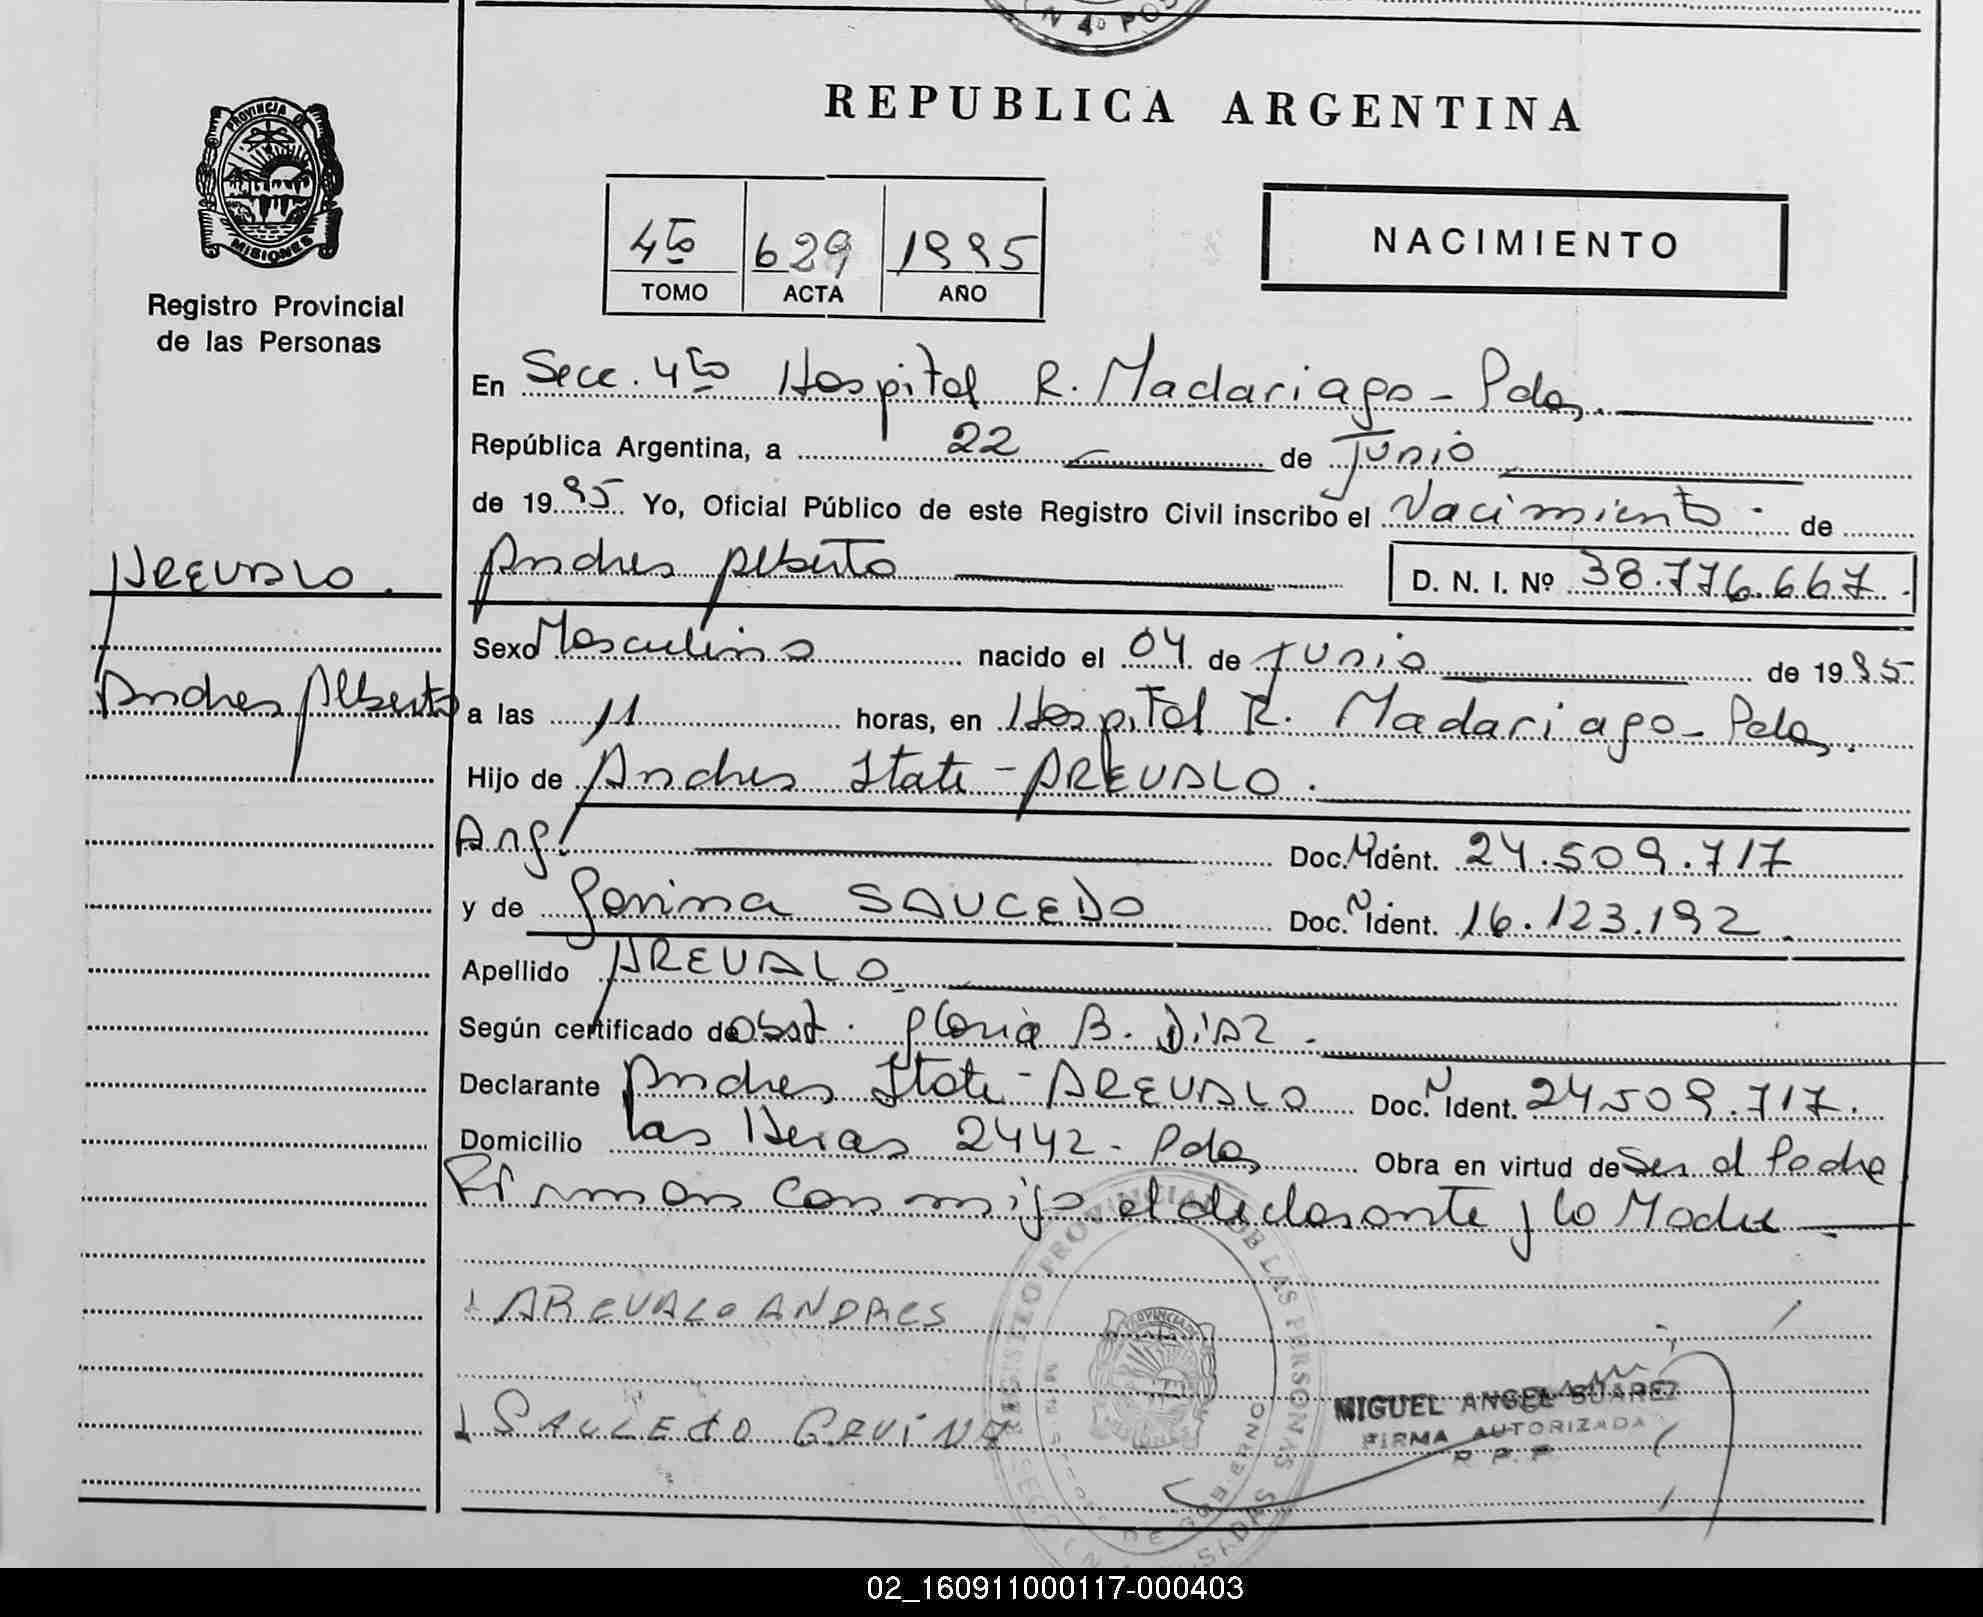 N 4º POS
REPUBLICA ARGENTINA
PROVINCIA DE
MISIONES
Registro Provincial
de las Personas
4to 629 1995
TOMO ACTA AÑO
NACIMIENTO
En Secc. 4to Hospital R. Madariaga - Pdas.
República Argentina, a 22 de Junio
de 1995 Yo, Oficial Público de este Registro Civil inscribo el Nacimiento de
AREVALO.
Andres Alberto D. N. I. Nº 38.776.667.
Sexo Masculino nacido el 04 de Junio de 1995
Andres Alberto
a las 11 horas, en Hospital R. Madariaga - Pdas.
Hijo de Andres Itati - AREVALO.
Arg. Doc. N Ident. 24.509.717
y de Gavina SAUCEDO Doc. N Ident. 16.123.192.
Apellido AREVALO
Según certificado de obst. Gloria B. Diaz.
Declarante Andres Itati - AREVALO Doc. N Ident. 24509.717.
Domicilio las Heras 2442 - Pdas Obra en virtud de Ser el Padre
Firman conmigo el declarante y la Madre
AREVALO ANDRES
SAUCEDO GAVINA
REGISTRO PROVINCIAL DE LAS PERSONAS
PROVINCIA DE
DE GOBIERNO
MIGUEL ANGEL SUAREZ
FIRMA AUTORIZADA
R. P. P.
02_160911000117-000403